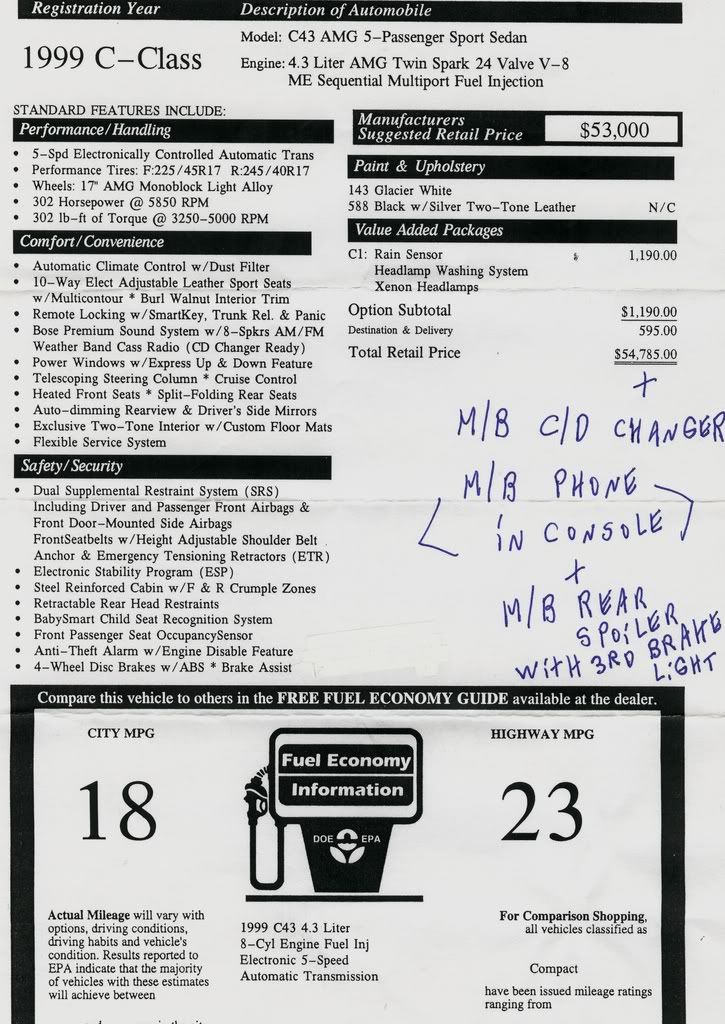 Registration Year
Description of Automobile
1999 C-Class
Model: C43 AMG 5-Passenger Sport Sedan
Engine: 4.3 Liter AMG Twin Spark 24 Valve V-8
ME Sequential Multiport Fuel Injection
STANDARD FEATURES INCLUDE:
Performance/Handling
• 5-Spd Electronically Controlled Automatic Trans
• Performance Tires: F:225/45R17 R:245/40R17
• Wheels: 17" AMG Monoblock Light Alloy
• 302 Horsepower @ 5850 RPM
• 302 lb-ft of Torque @ 3250-5000 RPM
Comfort/Convenience
• Automatic Climate Control w/Dust Filter
• 10-Way Elect Adjustable Leather Sport Seats
w/Multicontour * Burl Walnut Interior Trim
• Remote Locking w/SmartKey, Trunk Rel. & Panic
• Bose Premium Sound System w/8-Spkrs AM/FM
Weather Band Cass Radio (CD Changer Ready)
• Power Windows w/Express Up & Down Feature
• Telescoping Steering Column * Cruise Control
• Heated Front Seats * Split-Folding Rear Seats
• Auto-dimming Rearview & Driver's Side Mirrors
• Exclusive Two-Tone Interior w/Custom Floor Mats
• Flexible Service System
Safety/Security
• Dual Supplemental Restraint System (SRS)
Including Driver and Passenger Front Airbags &
Front Door-Mounted Side Airbags
FrontSeatbelts w/Height Adjustable Shoulder Belt
Anchor & Emergency Tensioning Retractors (ETR)
• Electronic Stability Program (ESP)
• Steel Reinforced Cabin w/F & R Crumple Zones
• Retractable Rear Head Restraints
• BabySmart Child Seat Recognition System
• Front Passenger Seat OccupancySensor
• Anti-Theft Alarm w/Engine Disable Feature
• 4-Wheel Disc Brakes w/ABS * Brake Assist
Manufacturers
Suggested Retail Price
$53,000
Paint & Upholstery
143 Glacier White
588 Black w/Silver Two-Tone Leather N/C
Value Added Packages
C1: Rain Sensor 1,190.00
Headlamp Washing System
Xenon Headlamps
Option Subtotal $1,190.00
Destination & Delivery 595.00
Total Retail Price $54,785.00
+
M/B C/D CHANGER
M/B PHONE
IN CONSOLE
+
M/B REAR
SPOILER
WITH 3RD BRAKE
LIGHT
Compare this vehicle to others in the FREE FUEL ECONOMY GUIDE available at the dealer.
CITY MPG
18
Fuel Economy
Information
DOE EPA
HIGHWAY MPG
23
Actual Mileage will vary with
options, driving conditions,
driving habits and vehicle's
condition. Results reported to
EPA indicate that the majority
of vehicles with these estimates
will achieve between
1999 C43 4.3 Liter
8-Cyl Engine Fuel Inj
Electronic 5-Speed
Automatic Transmission
For Comparison Shopping,
all vehicles classified as
Compact
have been issued mileage ratings
ranging from